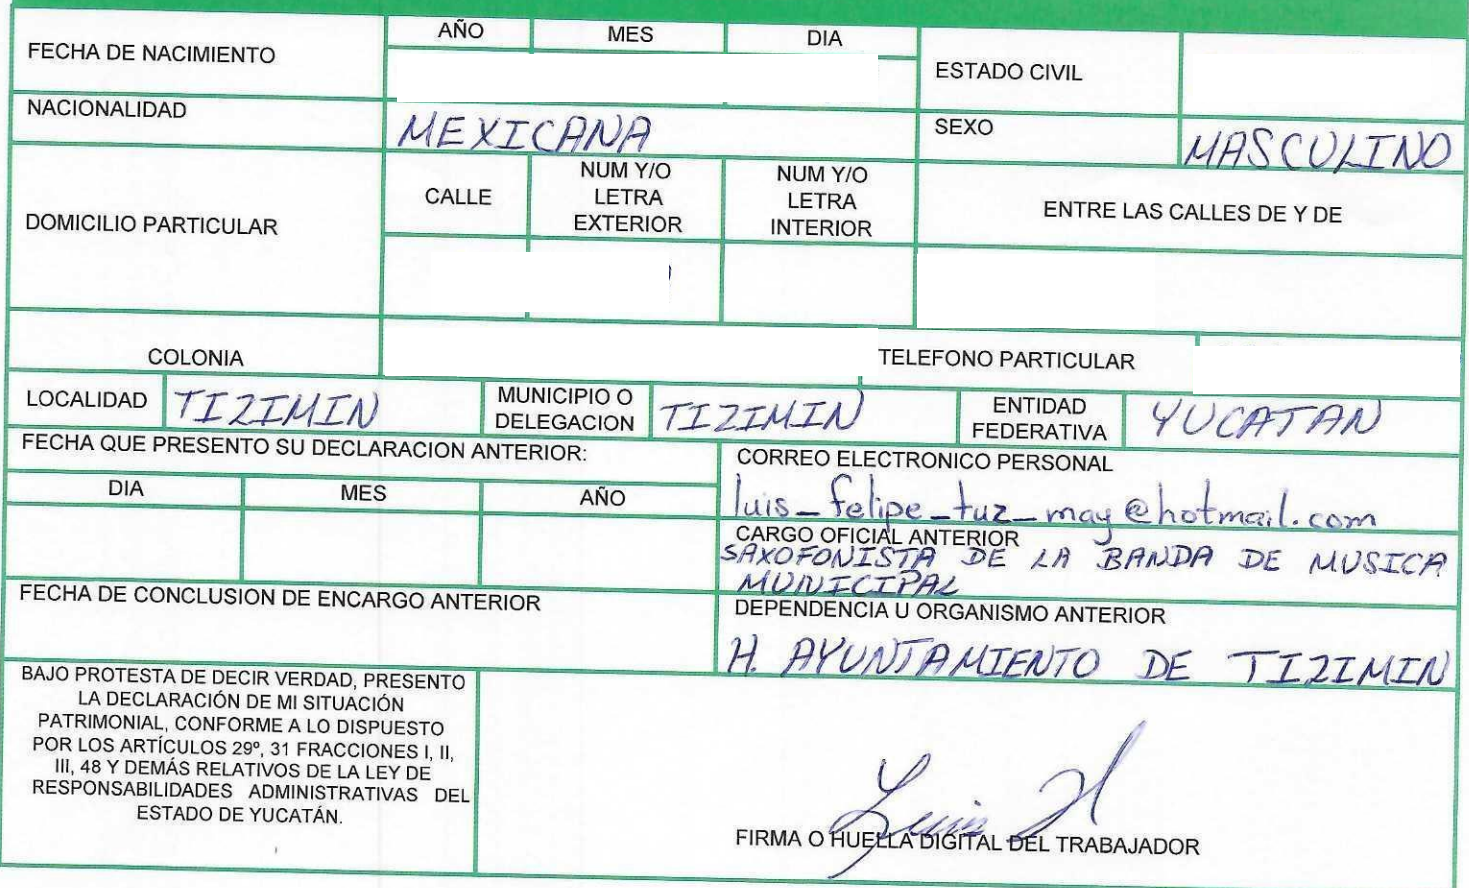 AÑO MES DIA
FECHA DE NACIMIENTO
ESTADO CIVIL
NACIONALIDAD MEXICANA
SEXO MASCULINO
DOMICILIO PARTICULAR
CALLE
NUM Y/O
LETRA
EXTERIOR
NUM Y/O
LETRA
INTERIOR
ENTRE LAS CALLES DE Y DE
COLONIA
TELEFONO PARTICULAR
LOCALIDAD TIZIMIN
MUNICIPIO O
DELEGACION TIZIMIN
ENTIDAD
FEDERATIVA YUCATAN
FECHA QUE PRESENTO SU DECLARACION ANTERIOR:
DIA MES AÑO
CORREO ELECTRONICO PERSONAL
luis_felipe_tuz_may@hotmail.com
CARGO OFICIAL ANTERIOR
SAXOFONISTA DE LA BANDA DE MUSICA
MUNICIPAL
FECHA DE CONCLUSION DE ENCARGO ANTERIOR
DEPENDENCIA U ORGANISMO ANTERIOR
H. AYUNTAMIENTO DE TIZIMIN
BAJO PROTESTA DE DECIR VERDAD, PRESENTO
LA DECLARACIÓN DE MI SITUACIÓN
PATRIMONIAL, CONFORME A LO DISPUESTO
POR LOS ARTÍCULOS 29º, 31 FRACCIONES I, II,
III, 48 Y DEMÁS RELATIVOS DE LA LEY DE
RESPONSABILIDADES ADMINISTRATIVAS DEL
ESTADO DE YUCATÁN.
Luis
FIRMA O HUELLA DIGITAL DEL TRABAJADOR